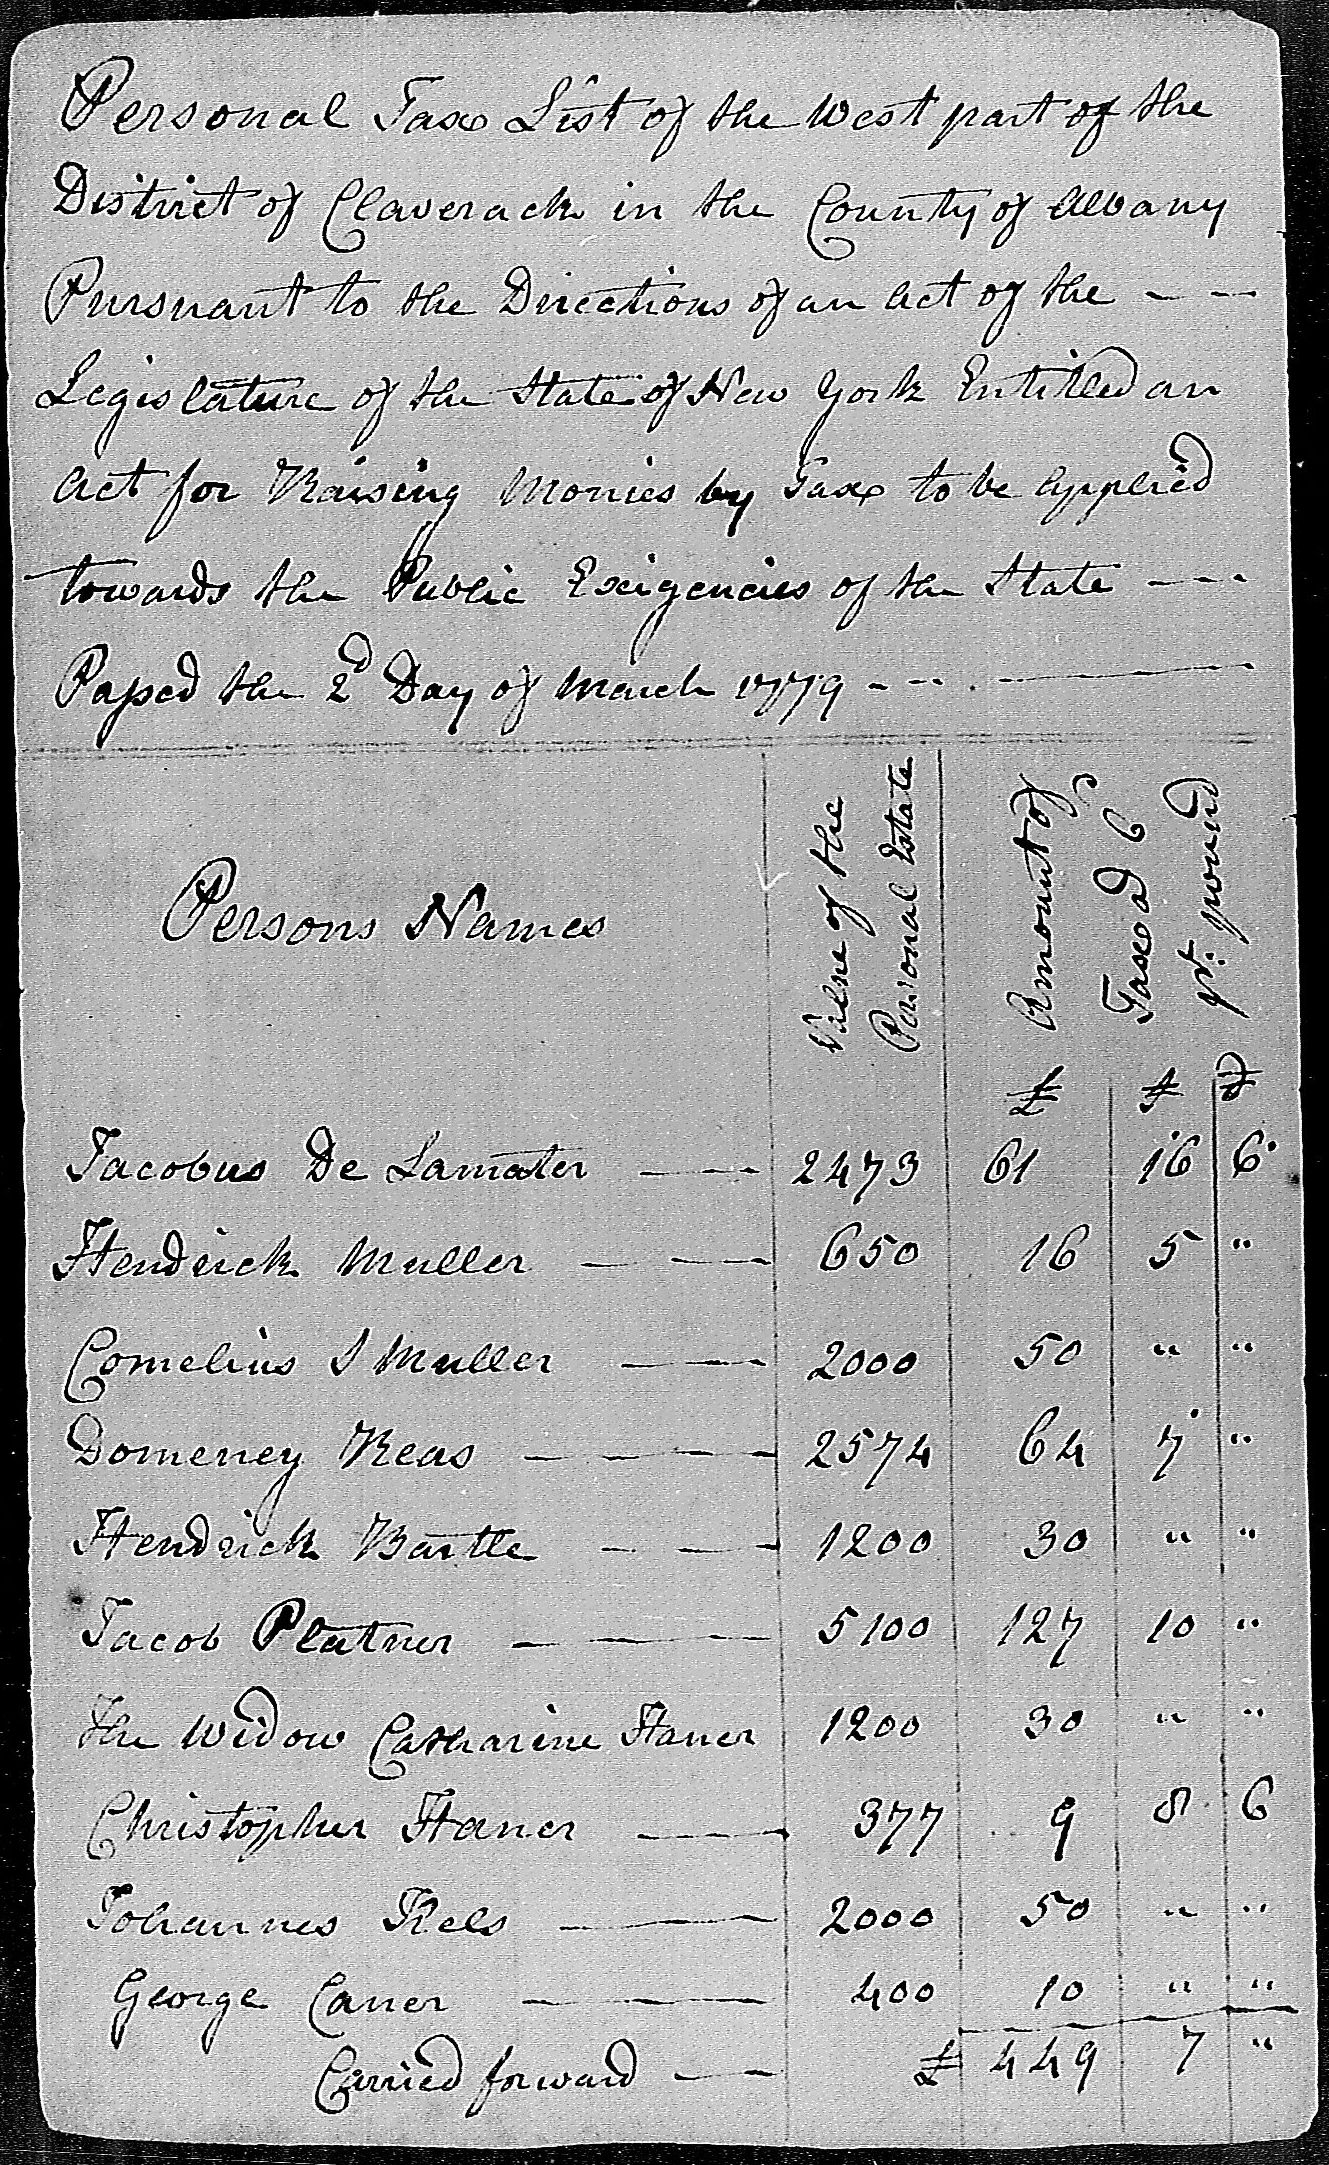 Personal Tax List of the West part of the
District of Claverack in the County of Albany
Pursuant to the Directions of an act of the - -
Legislature of the State of New York Entitled an
act for Raising Monies by Tax to be applied
towards the Public Exigencies of the State - - -
Passed the 2d Day of March 1779 - - - -
Persons Names
Value of the
Personal Estate
Amount of
Tax ad 6
pr. pound
£ s d
Jacobus De Lamater - - 2473 61 16 6
Hendrick Muller - - - 650 16 5 "
Cornelius J Muller - - - 2000 50 " "
Domeney Reas - - - - 2574 64 7 "
Hendrick Bartle - - - 1200 30 " "
Jacob Platner - - - - 5100 127 10 "
The Widow Catharine Haner 1200 30 " "
Christopher Haner - - - 377 9 8 6
Johannes Kels - - - 2000 50 " "
George Caner - - - - 400 10 " "
Carried forward - - £ 449 7 "